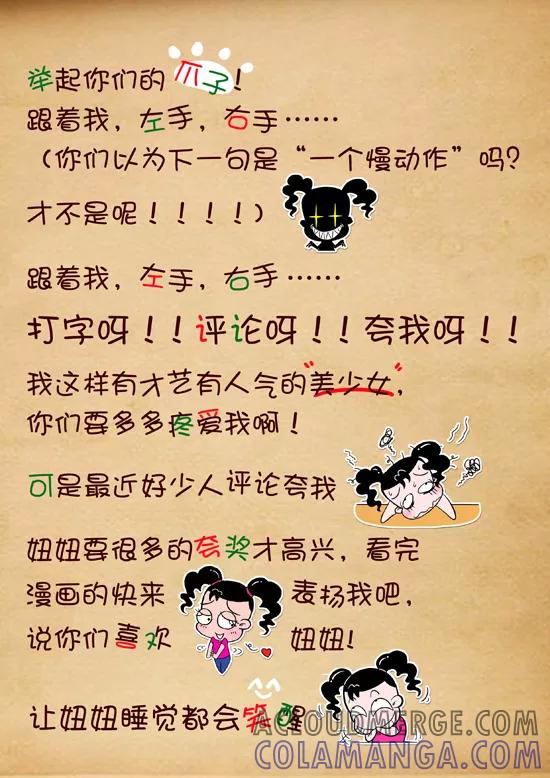 举起你们的爪子!
跟着我,左手,右手……
(你们以为下一句是“一个慢动作”吗?
才不是呢!!!!)
跟着我,左手,右手……
打字呀!!评论呀!!夸我呀!!
我这样有才艺有人气的"美少女",
你们要多多疼爱我啊!
可是最近好少人评论夸我
妞妞要很多的夸奖才高兴,看完
漫画的快来 表扬我吧,
说你们喜欢 妞妞!
让妞妞睡觉都会笑醒
ACLOUDMERGE.COM
COLAMANGA.COM